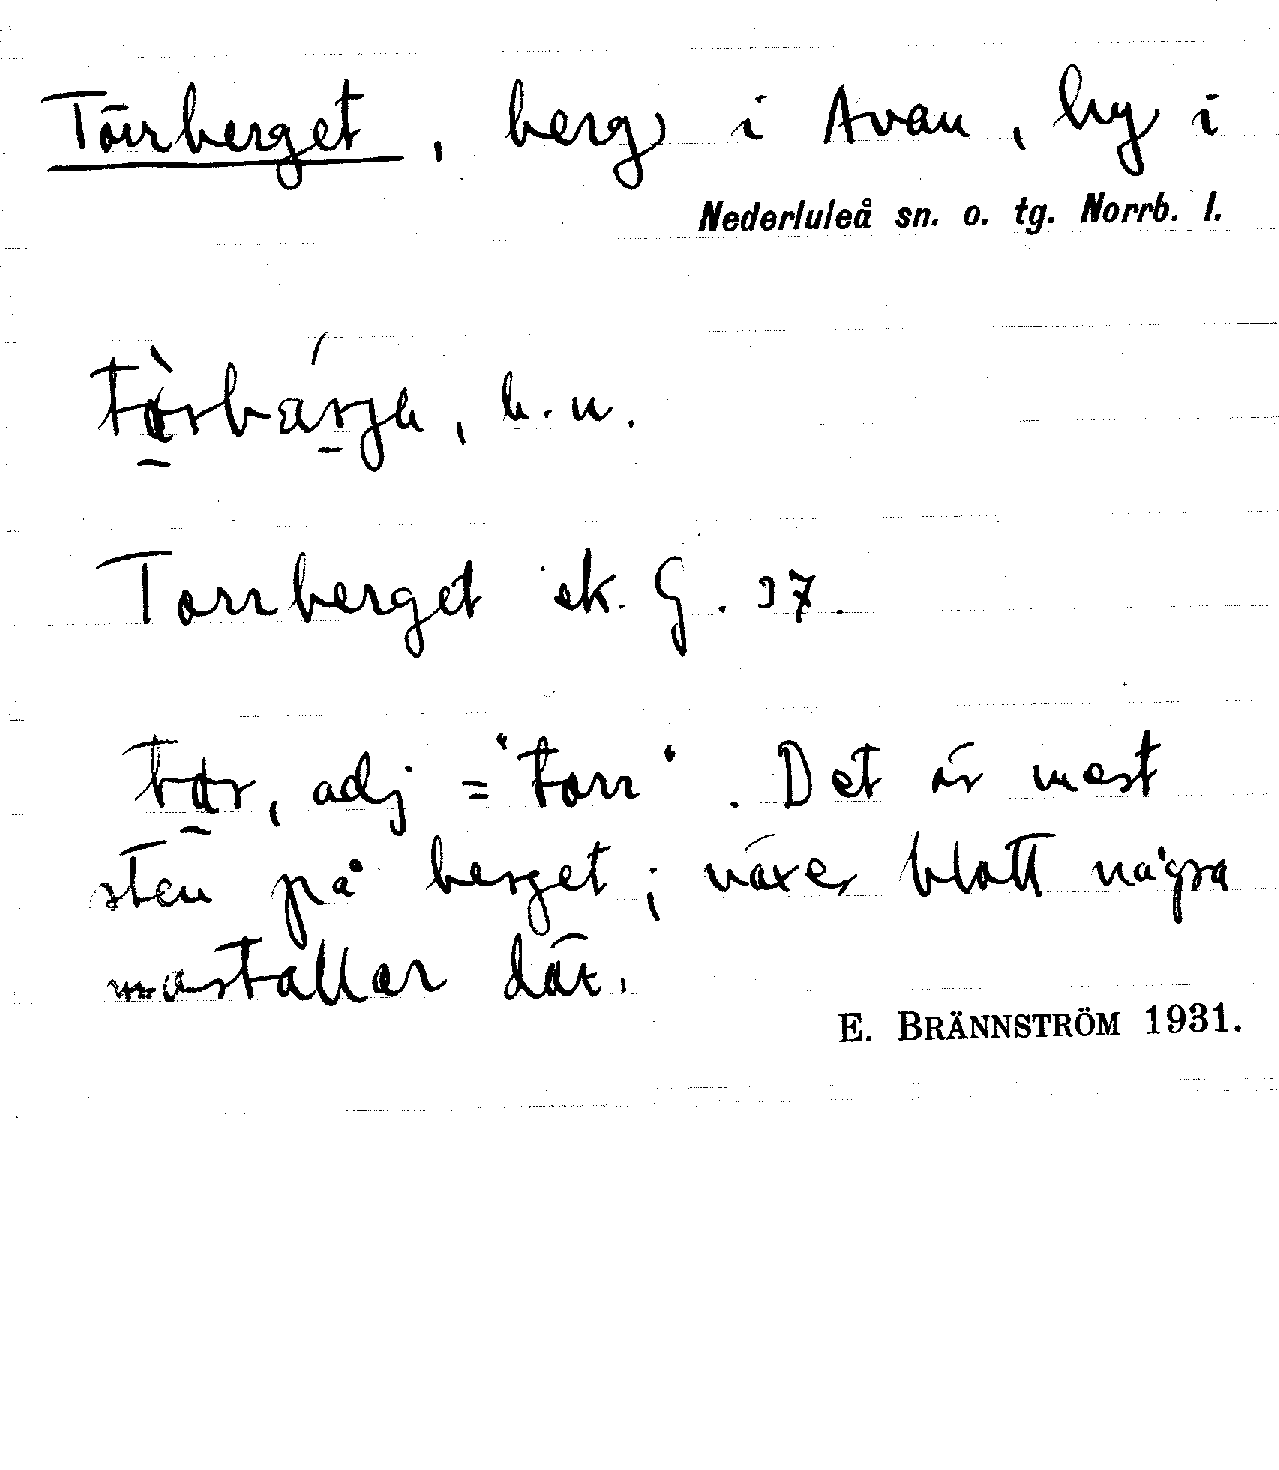 Törrberget, berg i Avan, by i
Nederluleå sn. o. tg. Norrb. l.
b.u.
Torrberget ek. G. 37.
adj = 'torr'. Det är mest
sten på berget; växer blott några
martallar där.
E. BRÄNNSTRÖM 1931.